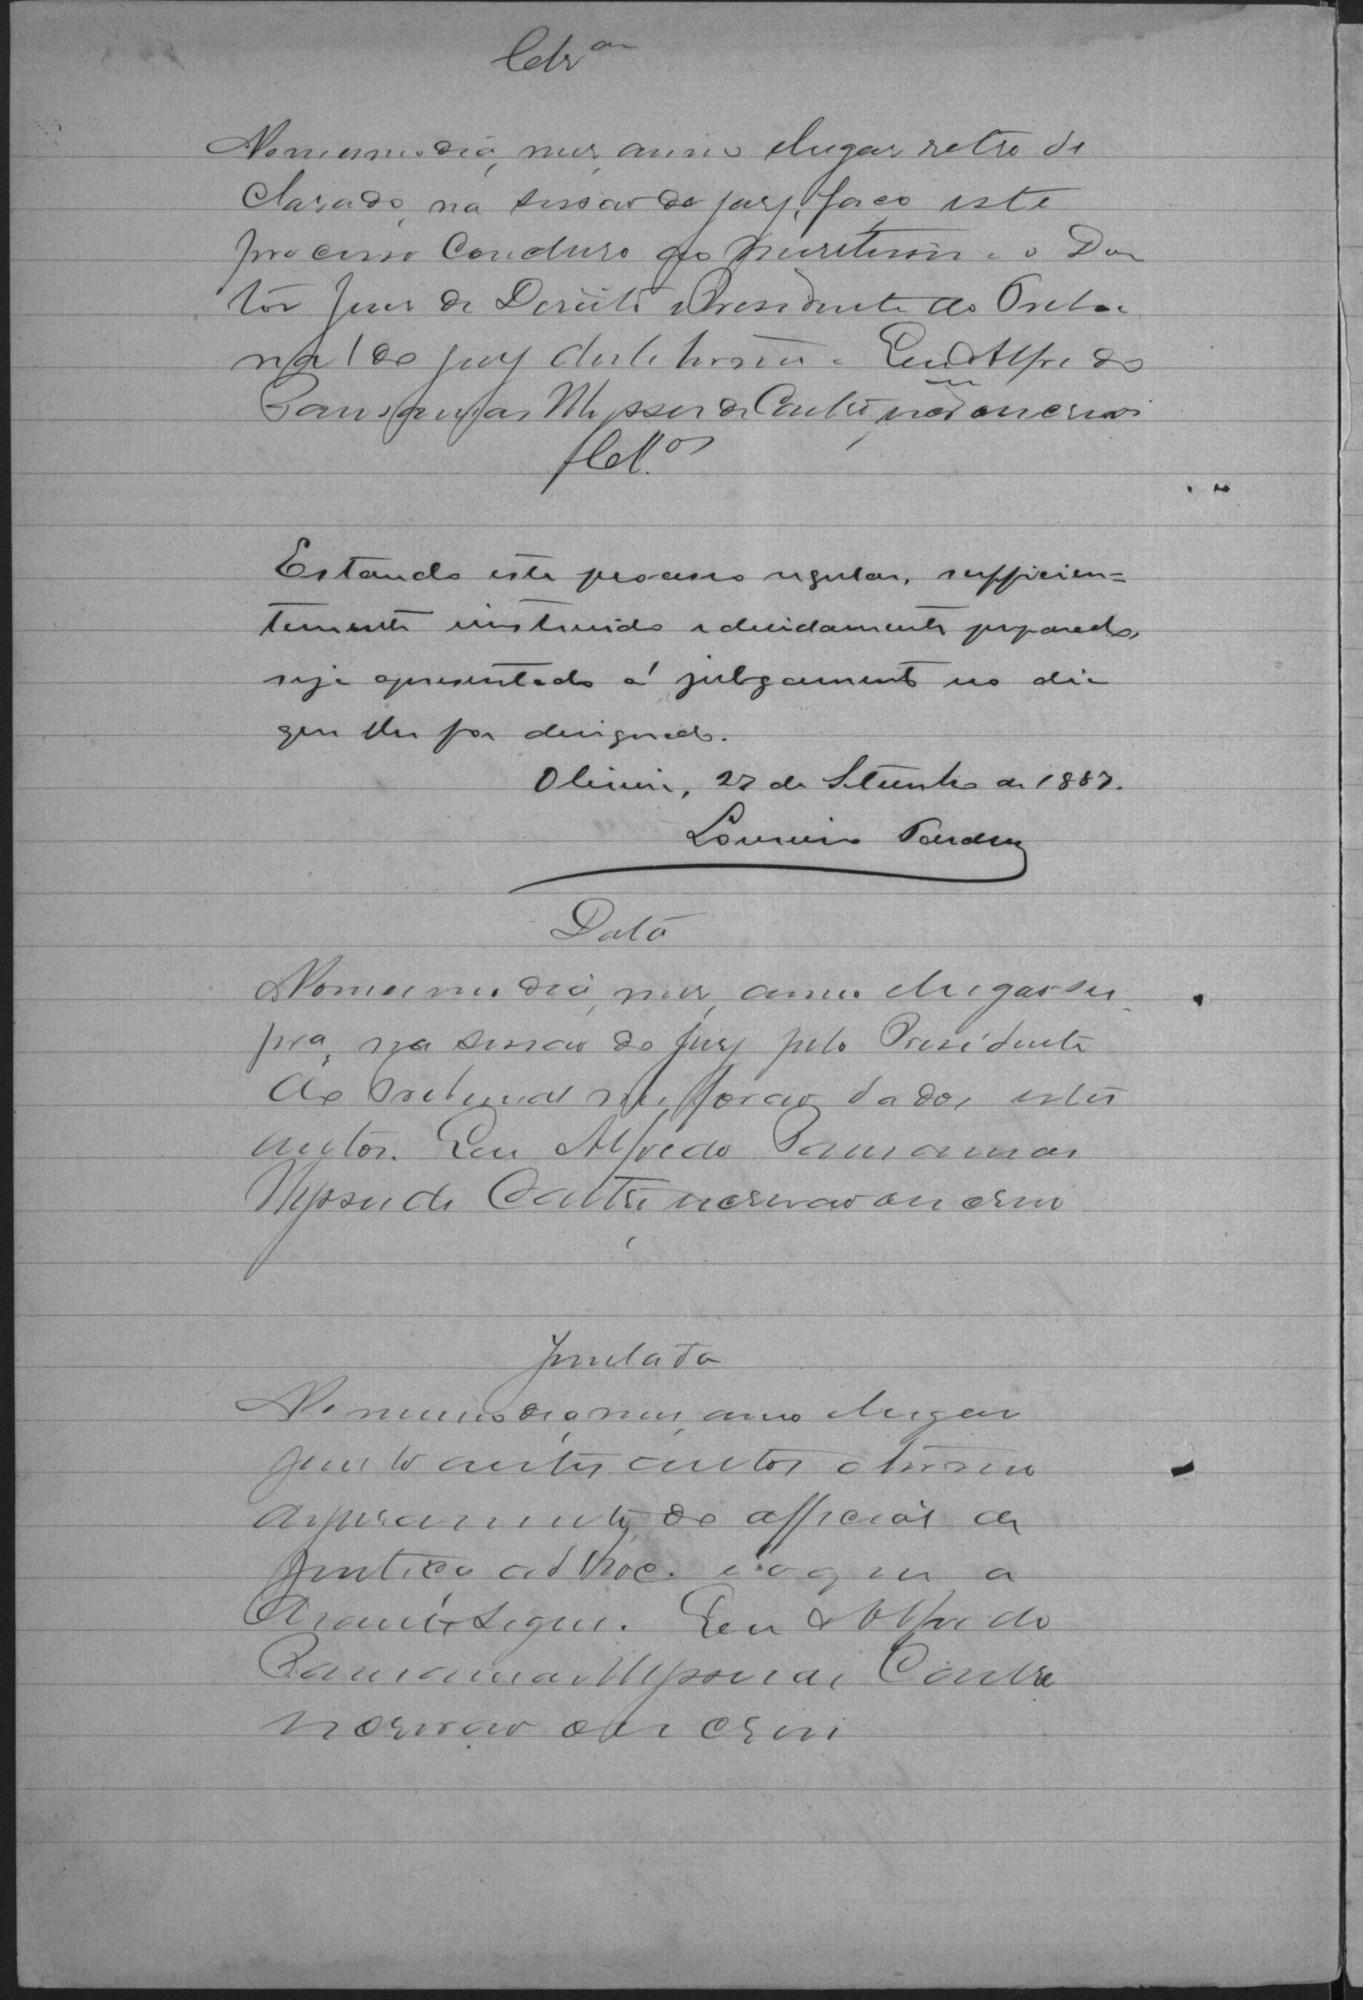 Clz.am
No mesmo dia, mez, anno e lugar retro de
clarado, na sessão do jury, faço este
processo concluso ao meretissimo Dou
tor Juiz de Direito e Presidente do Tribu
nal do jury deste termo. Eu Alfredo
Pausanias de Castro, escrivão o escrevi
Cll.os
Estando este processo regular, sufficien=
temente instruido e devidamente preparado,
seja apresentado á julgamento no dia
que lhe for designado.
Oliveira, 27 de Setembro de 1887.
Loureiro
Data
No mesmo dia, mez, anno e lugar su
pra, na sessão do jury pelo Presidente
do Tribunal me forão dados estes
autos. Eu Alfredo Pausanias
de Castro escrivão o escrevi
Juntada
No mesmo dia, mez, anno e lugar
junto a estes autos o termo
de juramento de official de
justiça ad hoc. e o que a
diante segue. Eu Alfredo
Pausanias de Castro
escrivão o escrevi